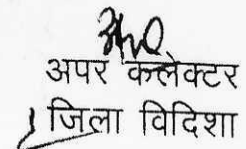 अपर कलेक्टर
जिला विदिशा